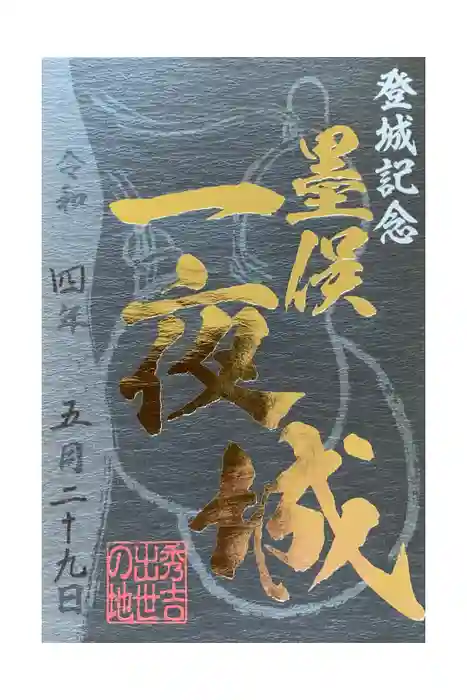 登城記念
墨俣
一夜城
令和
四年
五月二十九日
秀吉
出世
の地